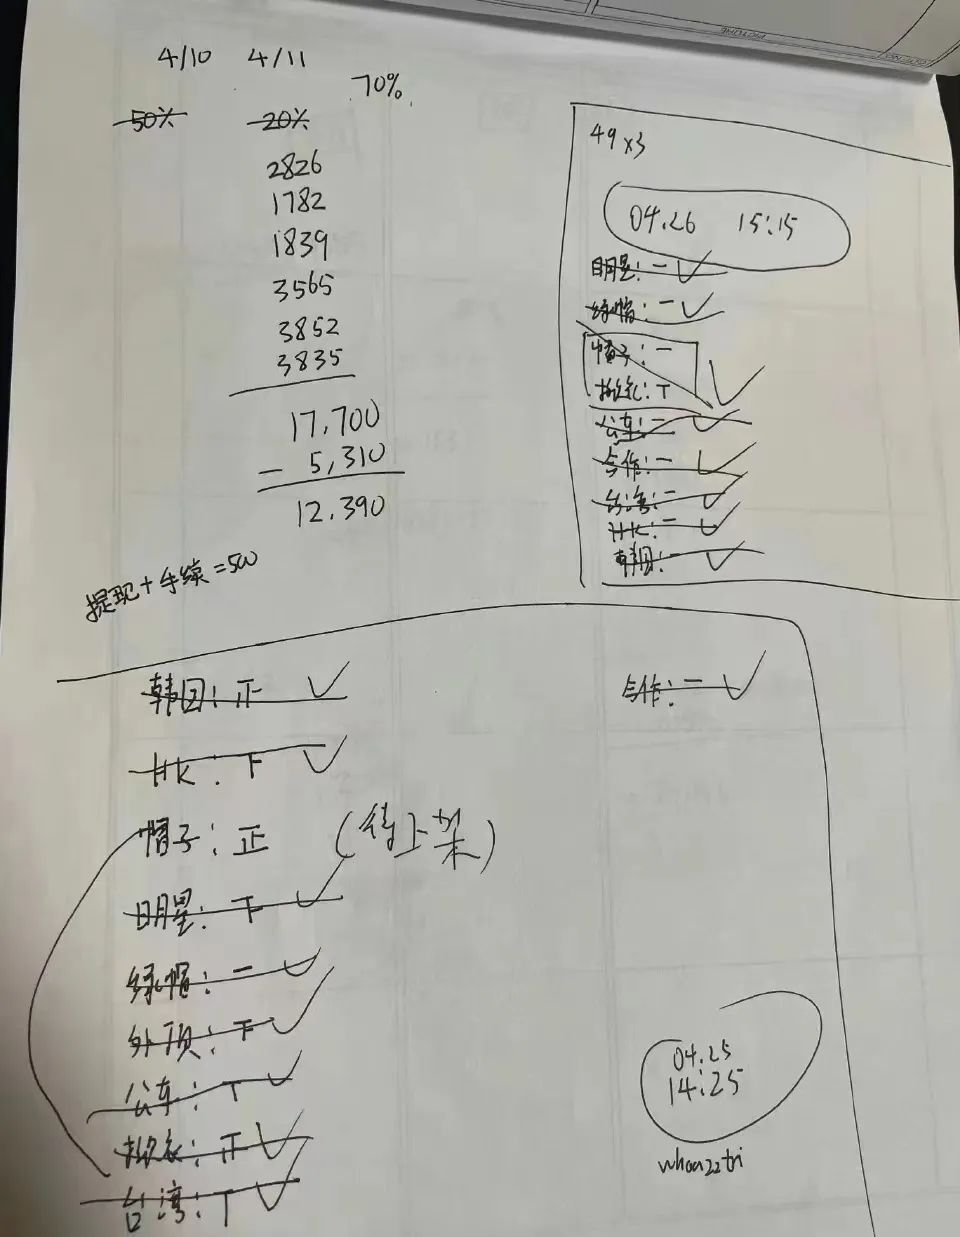 4/10 4/11
70%
50% 20%
2826
1782
1839
3565
3852
3835
17,700
- 5,310
12,390
提现+手续=500
49x3
04.26 15:15
明星:一
绿帽:一
帽子:一
公车:一
合作:一
台湾:一
HK:一
韩团:一
韩团:正
合作:一
HK:下
帽子:正 (待上架)
明星:下
绿帽:一
外顶:下
公车:丅
台湾:丅
04.25
14:25